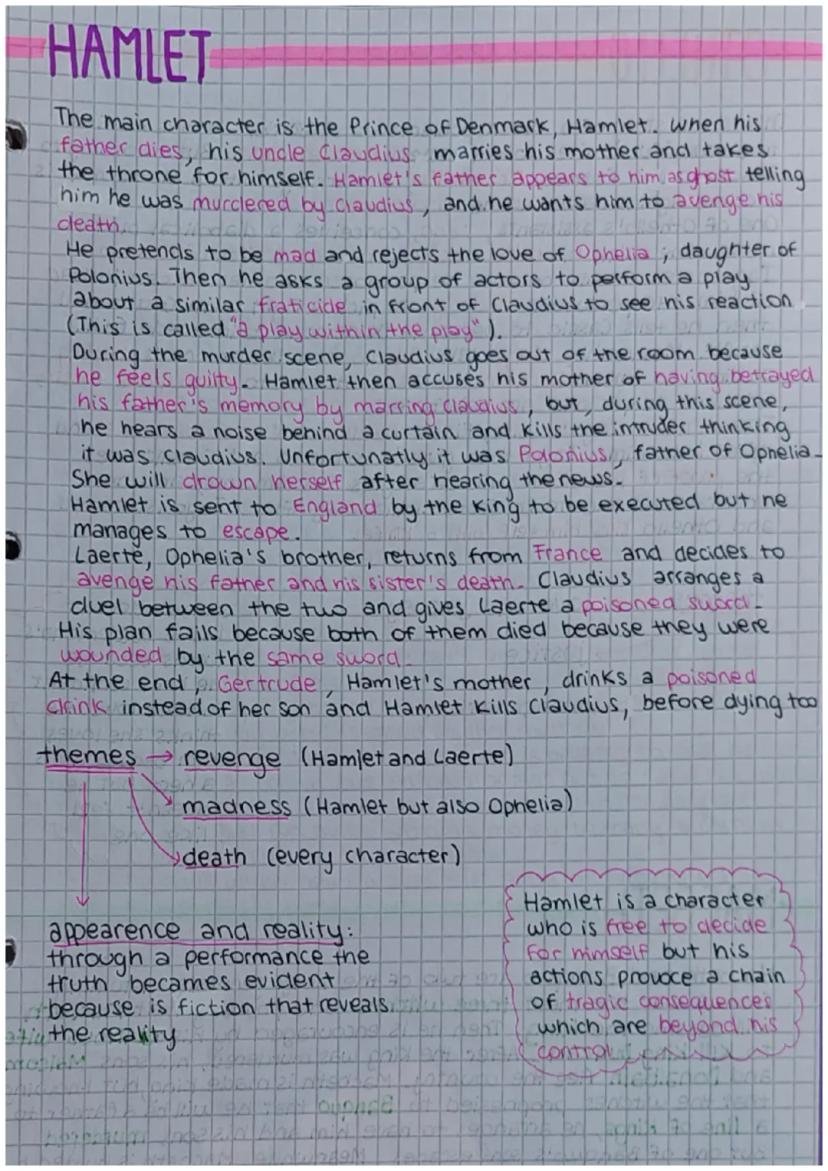 HAMLET
The main character is the Prince of Denmark, Hamlet. When his
father dies, his uncle Claudius marries his mother and takes
the throne for himself. Hamlet's father appears to him as ghost telling
him he was murdered by Claudius, and he wants him to avenge his
death.
He pretends to be mad and rejects the love of Ophelia, daughter of
Polonius. Then he asks a group of actors to perform a play
about a similar fraticide in front of Claudius to see his reaction
(This is called "a play within the play").
During the murder scene, Claudius goes out of the room because
he feels guilty. Hamlet then accuses his mother of having betrayed
his father's memory by marring Claudius, but, during this scene,
he hears a noise behind a curtain and kills the intruder thinking
it was Claudius. Unfortunatly it was Polonius, father of Ophelia.
She will drown herself after hearing the news.
Hamlet is sent to England by the King to be executed but he
manages to escape.
Laerte, Ophelia's brother, returns from France and decides to
avenge his father and his sister's death. Claudius arranges a
duel between the two and gives Laerte a poisoned sword.
His plan fails because both of them died because they were
wounded by the same sword.
At the end, Gertrude, Hamlet's mother, drinks a poisoned
drink instead of her son and Hamlet kills Claudius, before dying too
themes → revenge (Hamlet and Laerte)
madness (Hamlet but also Ophelia)
death (every character)
appearence and reality:
through a performance the
truth becames evident
because is fiction that reveals
the reality
Hamlet is a character
who is free to decide
for himself but his
actions provoce a chain
of tragic consequences
which are beyond his
control